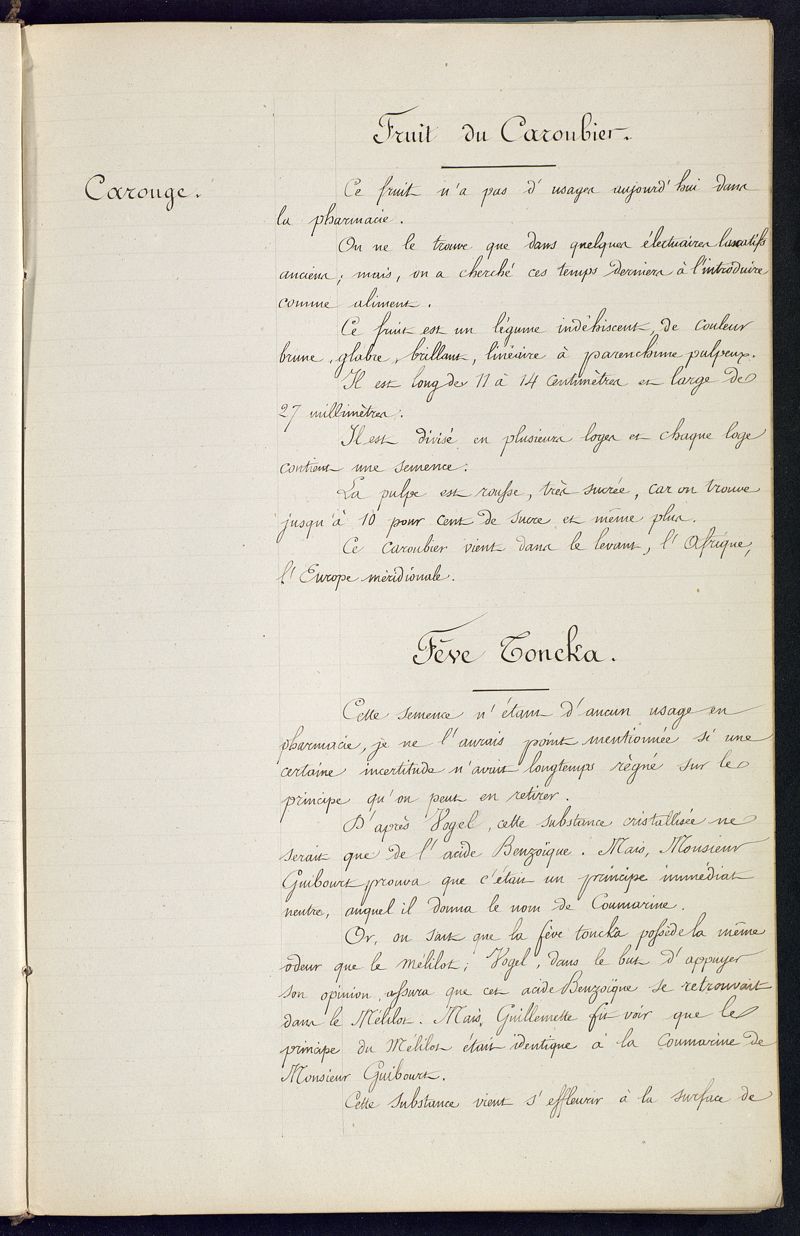 Fruit du Caroubier.
Carouge.
Ce fruit n'a pas d'usages aujourd'hui dans
la pharmacie.
On ne le trouve que dans quelques électuaires laxatifs
anciens; mais, on a cherché ces temps derniers à l'introduire
comme aliment.
Ce fruit est un légume indéhiscent, de couleur
brune, glabre, brillant, linéaire à parenchime pulpeux.
Il est long de 11 à 14 centimètres et large de
27 millimètres.
Il est divisé en plusieurs loges et chaque loge
contient une semence.
La pulpe est rousse, très sucrée, car on trouve
jusqu'à 10 pour cent de sucre et même plus.
Ce caroubier vient dans le levant, l'Afrique,
l'Europe méridionale.
Fève Toncka.
Cette semence n'étant d'aucun usage en
pharmacie, je ne l'aurais point mentionnée si une
certaine incertitude n'avait longtemps règné sur le
principe qu'on peut en retirer.
D'après Vogel, cette substance cristallisée ne
serait que de l'acide Benzoïque. Mais, Monsieur
Guibourt prouva que c'était un principe immédiat
neutre, auquel il donna le nom de Coumarine.
Or, on sait que la fève toncka possède la même
odeur que le mélilot; Vogel, dans le but d'appuyer
son opinion, assura que cet acide Benzoïque se retrouvait
dans le Mélilot. Mais, Guillemette fit voir que le
principe du Mélilot était identique à la coumarine de
Monsieur Guibourt.
Cette substance vient s'effleurir à la surface de